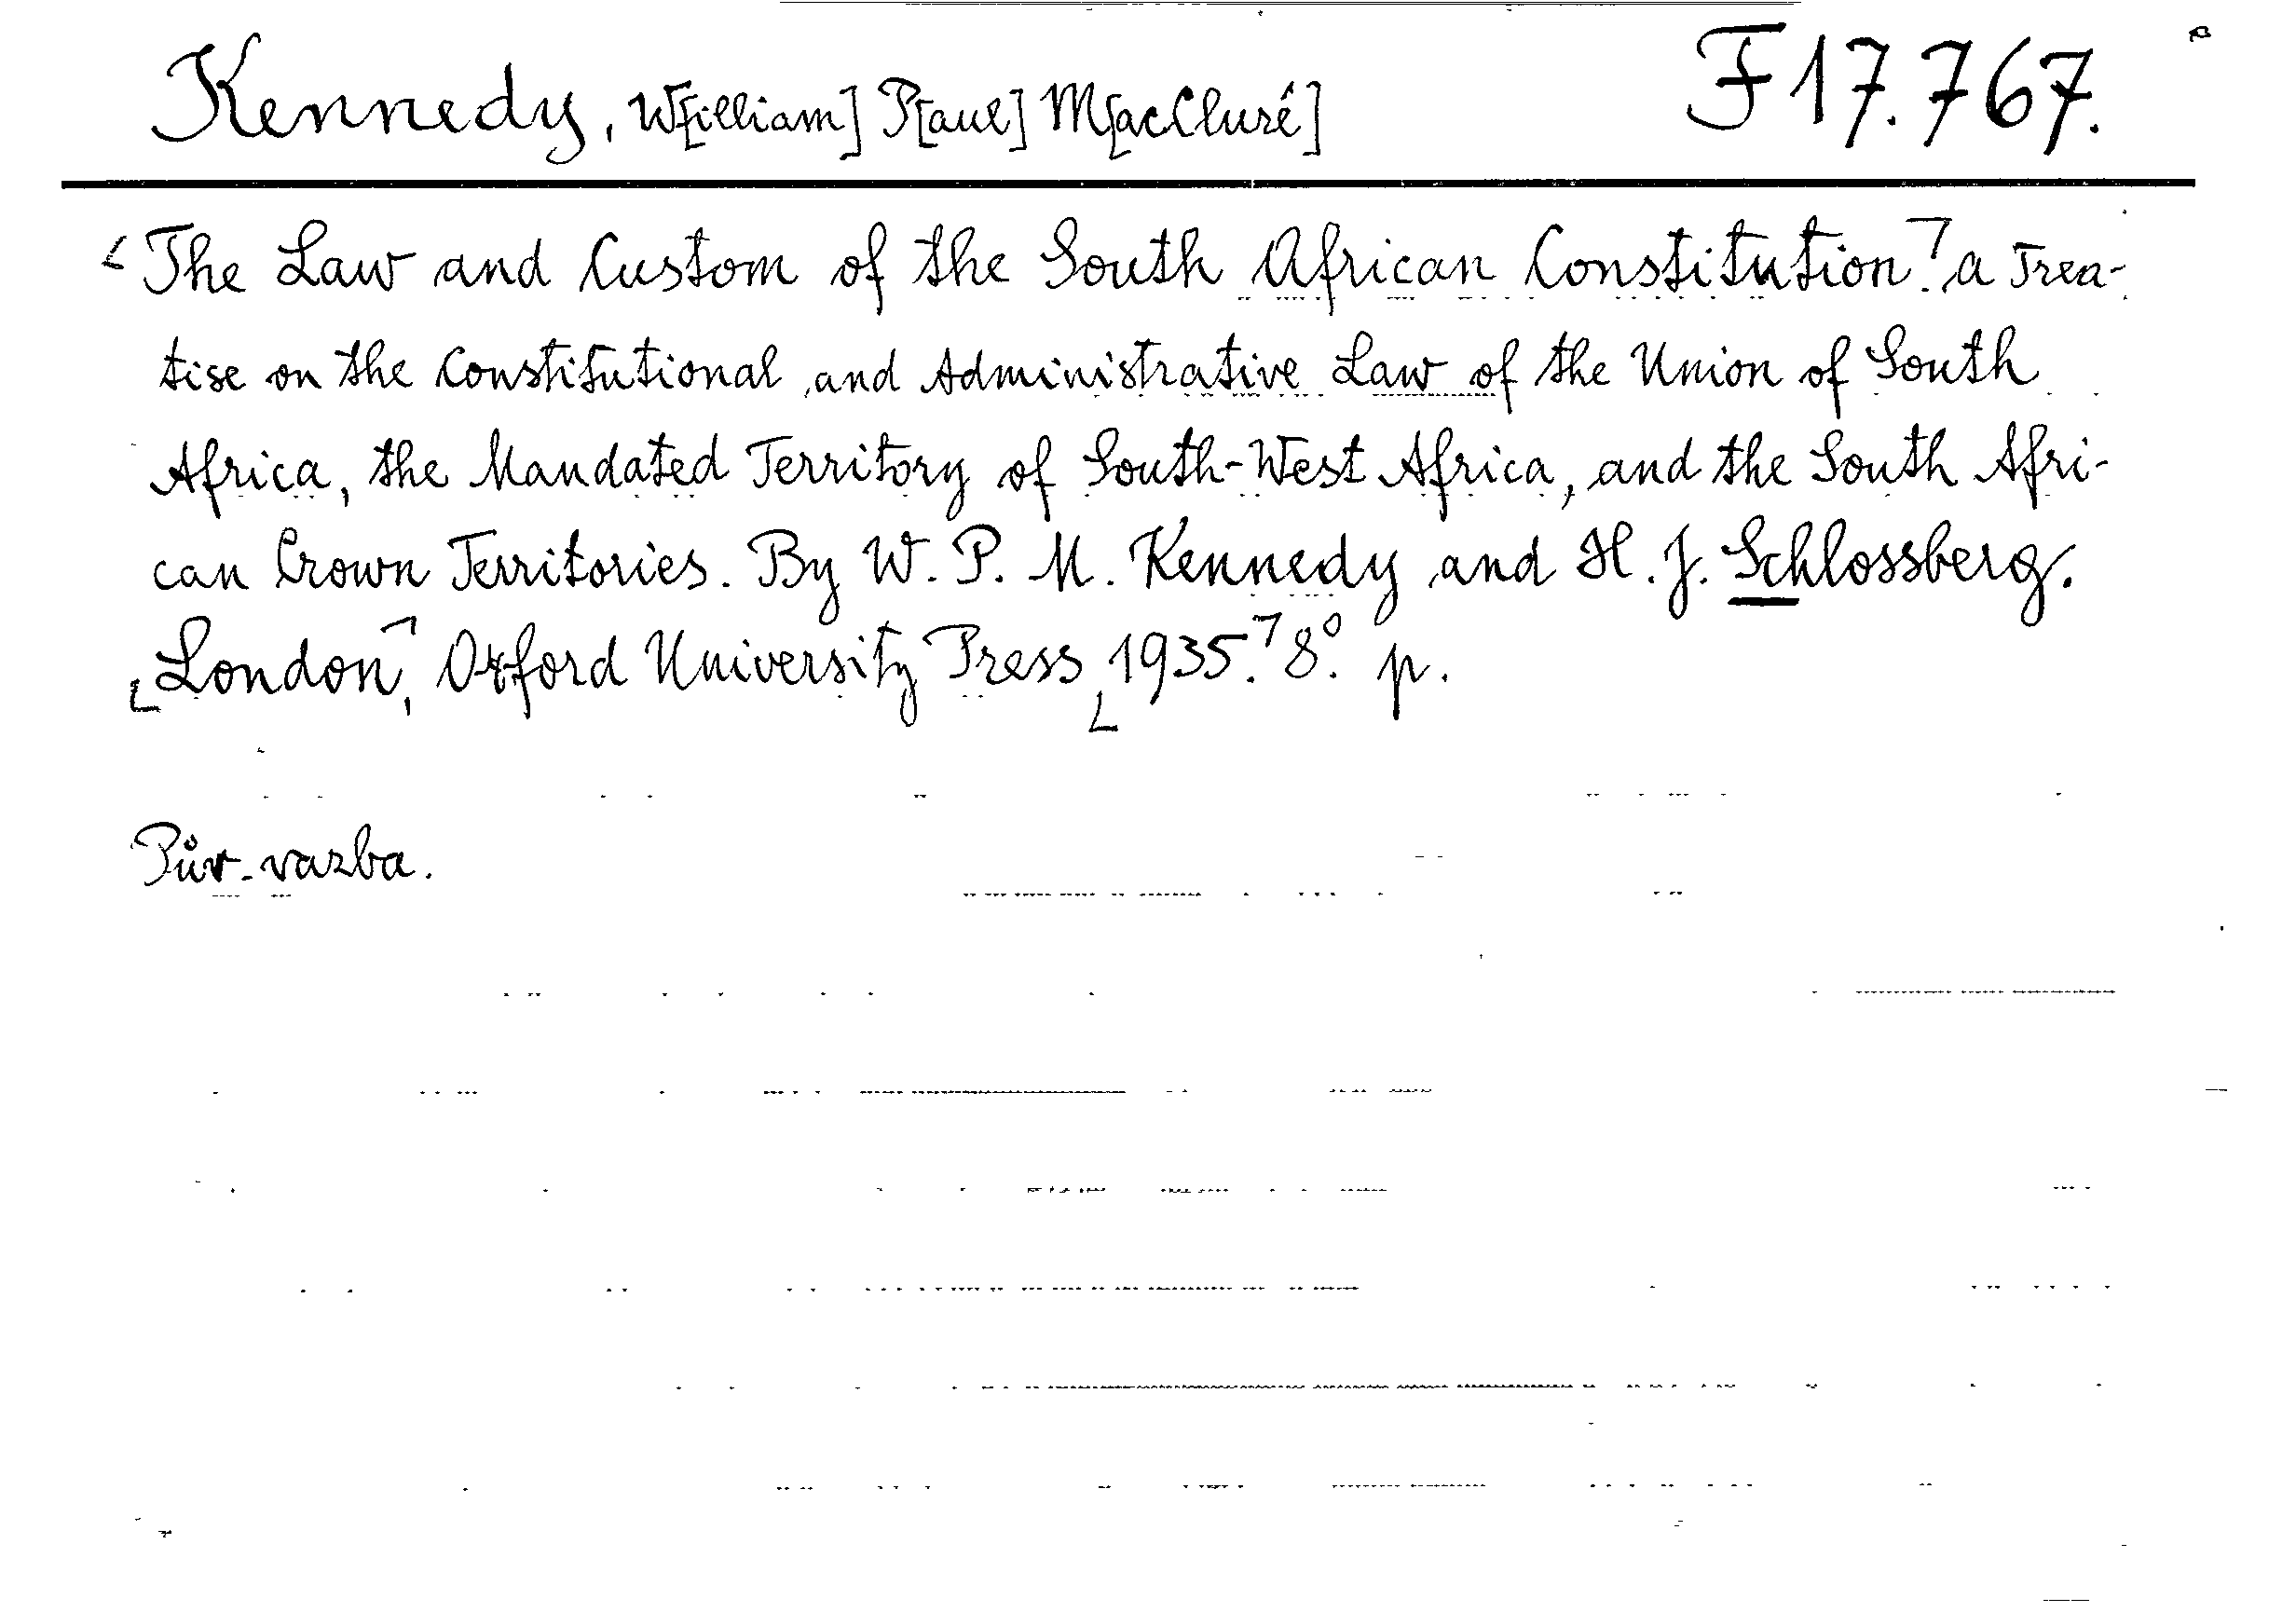 Kennedy, W[illiam] P[aul] M[acCluré] F 17.767.
⌊The Law and Custom of the South African Constitution.⌉ a Trea-
tise on the Constitutional and Administrative Law of the Union of South
Africa, the Mandated Territory of South-West Africa, and the South Afri-
can Crown Territories. By W. P. M. Kennedy and H. J. Schlossberg.
⌊London⌉, Oxford University Press ⌊1935.⌉ 8°. p.
Pův. vazba.